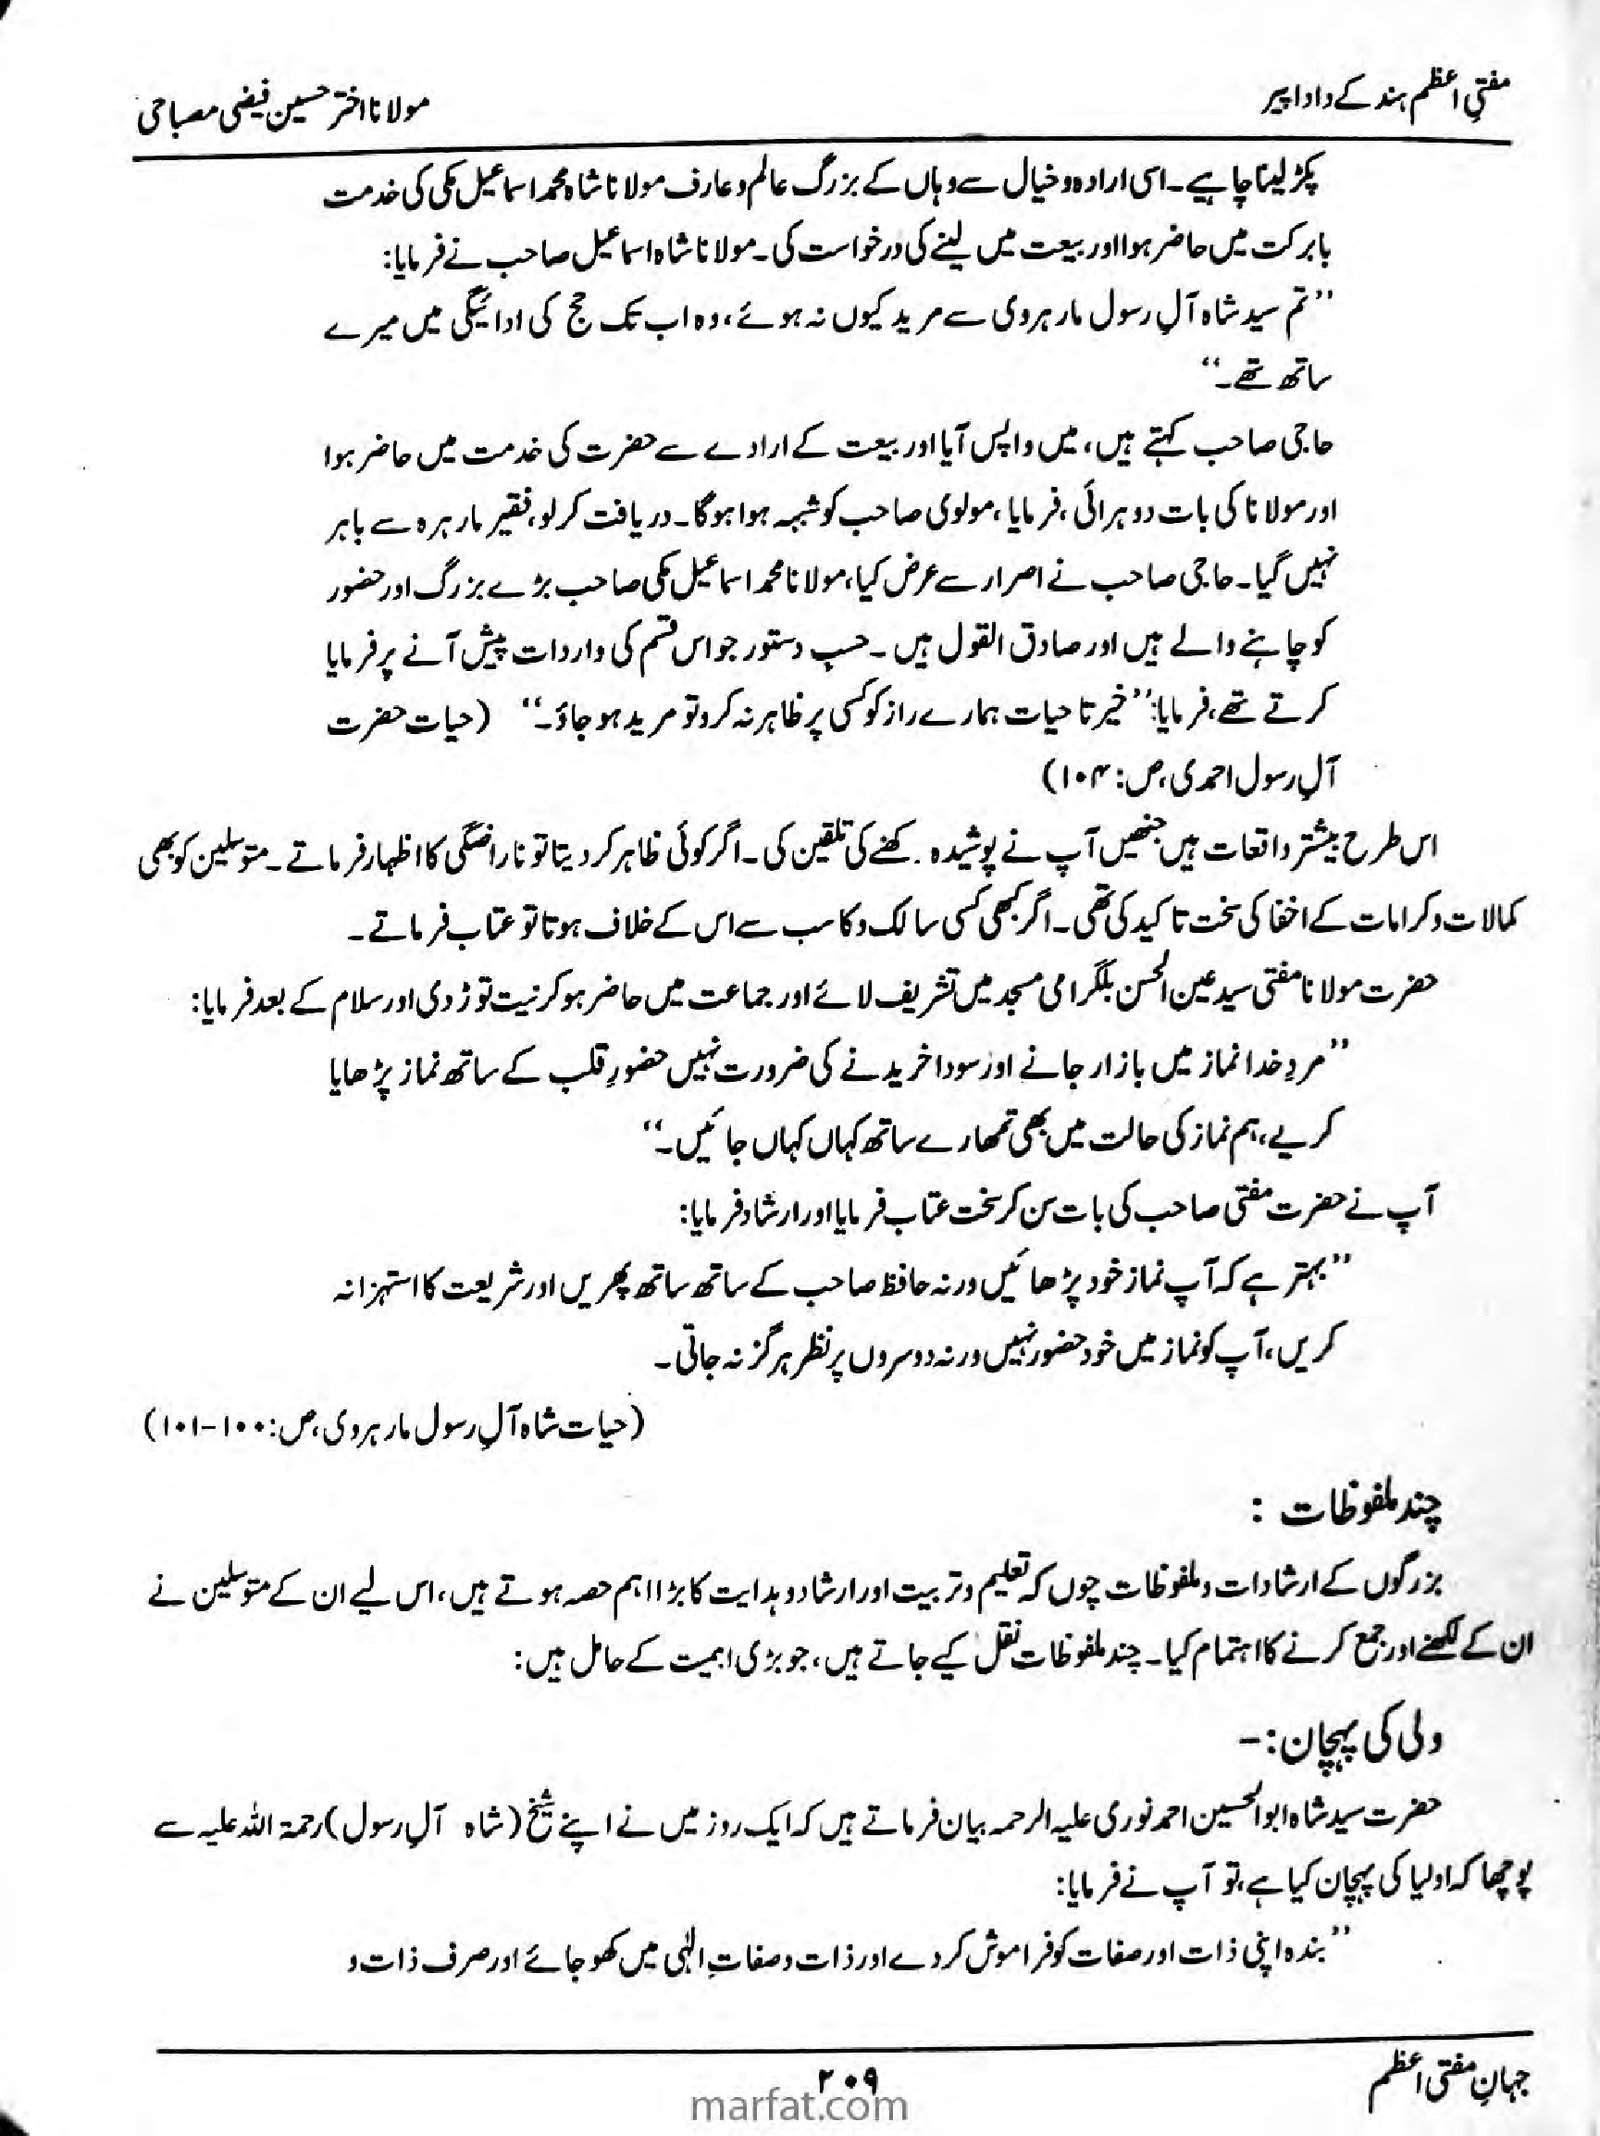 مفتیِ اعظم ہند کے دادا پیر
مولانا اختر حسین فیضی مصباحی
پکڑ لینا چاہیے۔ اسی ارادہ و خیال سے وہاں کے بزرگ عالم و عارف مولانا شاہ محمد اسماعیل مکی کی خدمت
بابرکت میں حاضر ہوا اور بیعت میں لینے کی درخواست کی۔ مولانا شاہ اسماعیل صاحب نے فرمایا:
”تم سید شاہ آلِ رسول مارہروی سے مرید کیوں نہ ہوئے، وہ اب تک حج کی ادائیگی میں میرے
ساتھ تھے۔“
حاجی صاحب کہتے ہیں، میں واپس آیا اور بیعت کے ارادے سے حضرت کی خدمت میں حاضر ہوا
اور مولانا کی بات دوہرائی، فرمایا، مولوی صاحب کو شبہہ ہوا ہوگا۔ دریافت کرلو، فقیر مارہرہ سے باہر
نہیں گیا۔ حاجی صاحب نے اصرار سے عرض کیا، مولانا محمد اسماعیل مکی صاحب بڑے بزرگ اور حضور
کو چاہنے والے ہیں اور صادق القول ہیں۔ حسبِ دستور جو اس قسم کی واردات پیش آنے پر فرمایا
کرتے تھے، فرمایا: ”خیر تا حیات ہمارے راز کو کسی پر ظاہر نہ کرو تو مرید ہو جاؤ۔“ (حیات حضرت
آلِ رسول احمدی، ص: ۱۰۴)
اس طرح بیشتر واقعات ہیں جنھیں آپ نے پوشیدہ کھنے کی تلقین کی۔ اگر کوئی ظاہر کر دیتا تو ناراضگی کا اظہار فرماتے۔ متوسلین کو بھی
کمالات و کرامات کے اخفا کی سخت تاکید کی تھی۔ اگر کبھی کسی سالک و کاسب سے اس کے خلاف ہوتا تو عتاب فرماتے۔
حضرت مولانا مفتی سید عین الحسن بلگرامی مسجد میں تشریف لائے اور جماعت میں حاضر ہو کر نیت توڑ دی اور سلام کے بعد فرمایا:
”مردِ خدا نماز میں بازار جانے اور سودا خریدنے کی ضرورت نہیں حضورِ قلب کے ساتھ نماز پڑھایا
کریے، ہم نماز کی حالت میں بھی تمھارے ساتھ کہاں کہاں جائیں۔“
آپ نے حضرت مفتی صاحب کی بات سن کر سخت عتاب فرمایا اور ارشاد فرمایا:
”بہتر ہے کہ آپ نماز خود پڑھائیں ورنہ حافظ صاحب کے ساتھ ساتھ پھریں اور شریعت کا استہزا نہ
کریں، آپ کو نماز میں خود حضور نہیں ورنہ دوسروں پر نظر ہرگز نہ جاتی۔
(حیات شاہ آلِ رسول مارہروی، ص: ۱۰۰-۱۰۱)
چند ملفوظات :
بزرگوں کے ارشادات و ملفوظات چوں کہ تعلیم و تربیت اور ارشاد و ہدایت کا بڑا اہم حصہ ہوتے ہیں، اس لیے ان کے متوسلین نے
ان کے لکھنے اور جمع کرنے کا اہتمام کیا۔ چند ملفوظات نقل کیے جاتے ہیں، جو بڑی اہمیت کے حامل ہیں:
ولی کی پہچان:-
حضرت سید شاہ ابوالحسین احمد نوری علیہ الرحمہ بیان فرماتے ہیں کہ ایک روز میں نے اپنے شیخ (شاہ آلِ رسول) رحمۃ اللہ علیہ سے
پوچھا کہ اولیا کی پہچان کیا ہے، تو آپ نے فرمایا:
”بندہ اپنی ذات اور صفات کو فراموش کردے اور ذات و صفاتِ الٰہی میں کھو جائے اور صرف ذات و
جہانِ مفتی اعظم
۲۰۹
marfat.com